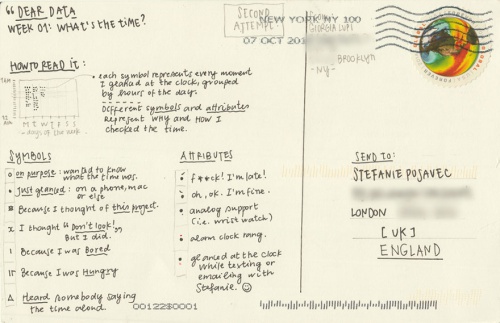 “DEAR DATA
WEEK 01: WHAT'S THE TIME?
HOW TO READ IT:
• each symbol represents every moment
I glanced at the clock, grouped
by hours of the day.
Different symbols and attributes
represent why and how I
checked the time.
M T W T F S S
- days of the week -
SYMBOLS
on purpose: wanted to know
what the time was.
Just glanced: on a phone, mac
or else
Because I thought of this project.
x I thought "Don't look!"
But I did.
Because I was Bored
Because I was Hungry
△ Heard somebody saying
the time aloud.
ATTRIBUTES
f**ck! I'm late!
oh, ok. I'm fine.
analog support
(i.e. wrist watch)
alarm clock rang.
glanced at the clock
while texting or
emailing with
Stefanie. ☺
SECOND
ATTEMPT
NEW YORK NY 100
07 OCT 201
FROM:
GIORGIA LUPI
BROOKLYN
- NY -
SEND TO:
STEFANIE POSAVEC
LONDON
[UK]
ENGLAND